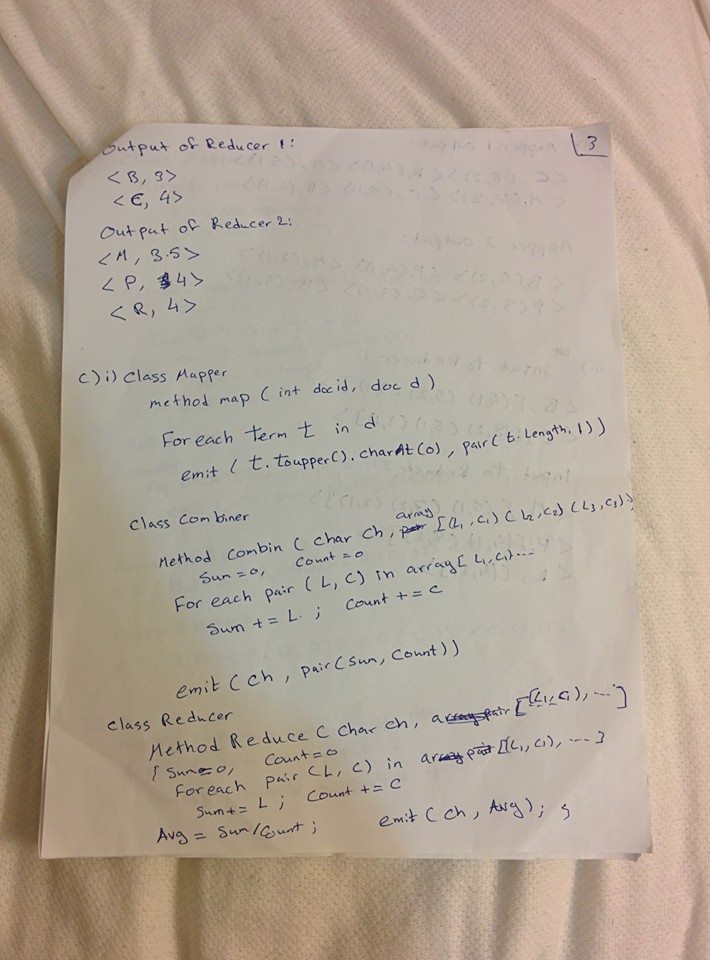 3
Output of Reducer 1:
<B, 3>
<C, 4>
Output of Reducer 2:
<M, 3.5>
<P, 4>
<R, 4>
C) i) Class Mapper
method map ( int docid, doc d )
For each term t in d
emit ( t.toupper().charAt(0), pair( t.length, 1))
Class Combiner
Method Combin ( char ch, array [(L1, C1) (L2, C2) (L3, C3)]
Sum = 0, Count = 0
For each pair (L, C) in array[ L1, C1)...
Sum += L ; Count += C
emit ( ch , pair(Sum, Count))
Class Reducer
Method Reduce ( char ch, [(L1, C1), ...]
{ Sum = 0, Count = 0
For each pair (L, C) in [(L1, C1), ...]
Sum += L ; Count += C
Avg = Sum/Count ; emit ( ch, Avg); }